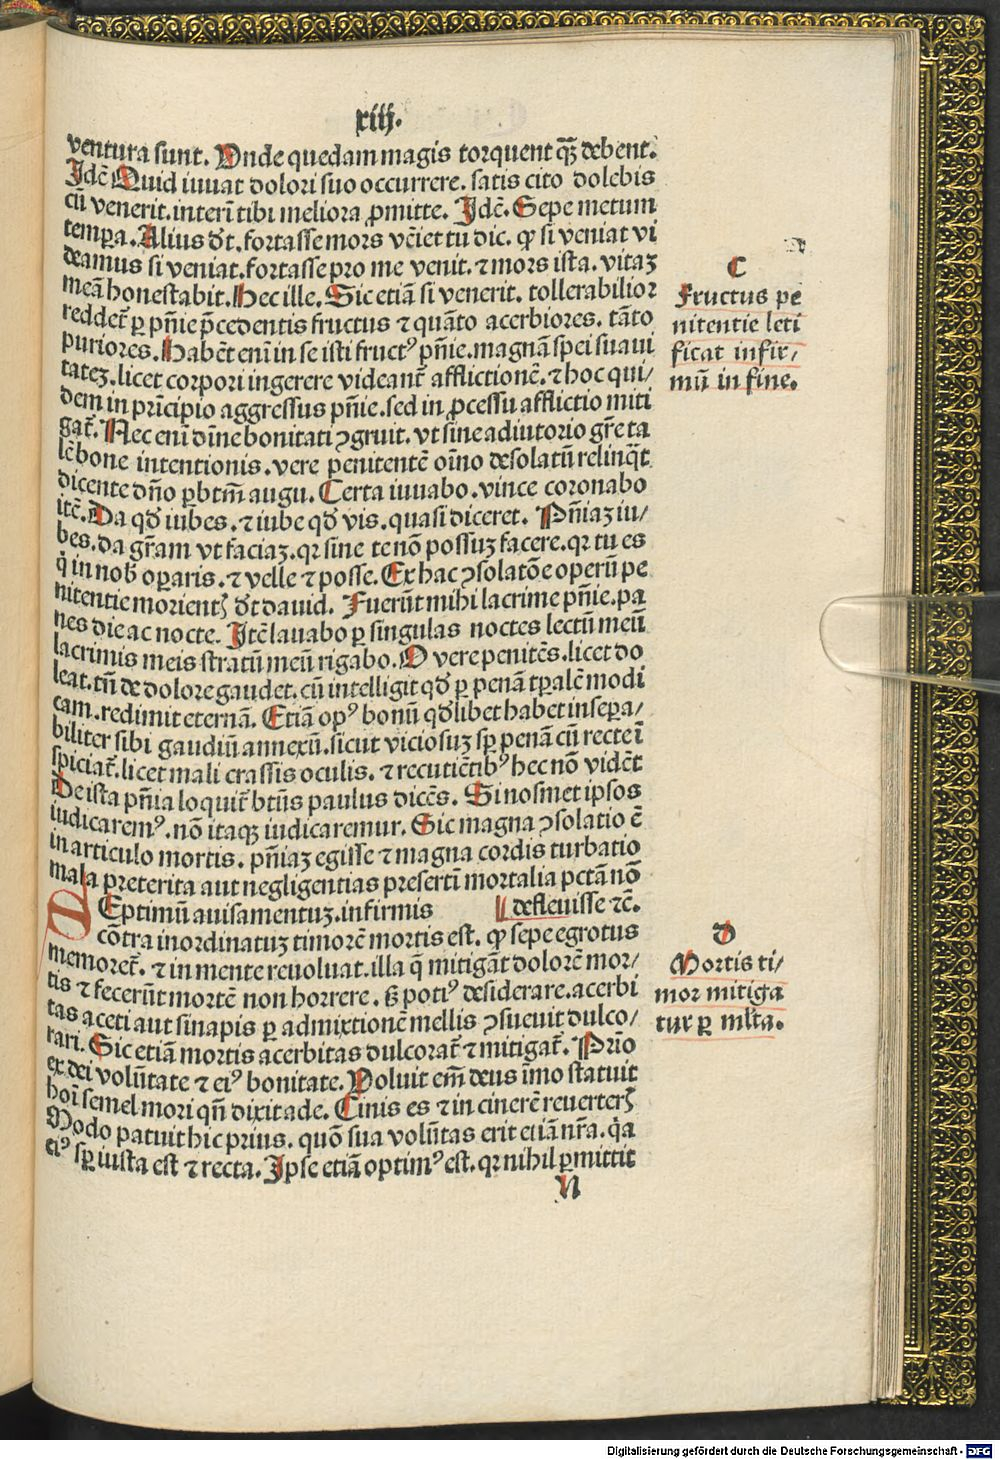 xiij.
ventura sunt. Vnde quedam magis torquent qȝ̄ debent.
Jdē Quid iuuat dolori suo occurrere. satis cito dolebis
cū venerit. interī tibi meliora ꝓmitte. Jdē. Sepe metum
temꝑa. Alius dt̄. fortasse mors vēiet tu dic. qꝛ si veniat vi
deamus si veniat. fortasse pro me venit. ⁊ mors ista. vitaȝ
meā honestabit. Hec ille. Sic etiā si venerit. tollerabilior
reddet̄ ꝑ pn̄ie p̄cedentis fructus ⁊ quāto acerbiores. tāto
puriores. Habēt eni in se isti fructꝰ pn̄ie. magnā spei suaui
tateȝ. licet corpori ingerere videant̄ afflictionē. ⁊ hoc qui/
dem in prīcipio aggressus pn̄ie. sed in ꝓcessu afflictio miti
gat̄. Nec eni dīne bonitati ꝯgruit. vt sine adiutorio gr̄e ta
lē bone intentionis. vere penitentē oīno desolatū relinq̄t
dicente dn̄o ꝑ btm̄ augu. Certa iuuabo. vince coronabo
itē. Da qd̄ iubes. ⁊ iube qd̄ vis. quasi diceret. Pn̄iaȝ iu/
bes. da gr̄am vt faciaȝ. qꝛ sine te nō possuȝ facere. qꝛ tu es
q̇ in nob̄ oꝑaris. ⁊ velle ⁊ posse. Ex hac ꝯsolatōe operū pe
nitentie morientꝭ dt̄ dauid. Fuerūt mihi lacrime pn̄ie. pa
nes die ac nocte. Jtē lauabo ꝑ singulas noctes lectū meū
lacrimis meis stratū meū rigabo. O vere penitēs. licet do
leat. tn̄ de dolore gaudet. cū intelligit qd̄ ꝑ penā tꝑalē modi
cam. redimit eternā. Etiā opꝰ bonū qd̄libet habet inseꝑa/
biliter sibi gaudiū annexū. sicut viciosuȝ sꝑ penā cū recte ī
spiciat̄. licet mali crassis oculis. ⁊ recutiētibꝰ hec nō vidēt
De ista pn̄ia loquit̄ btūs paulus dicēs. Si nosmet ipsos
iudicaremꝰ. nō itaqȝ iudicaremur. Sic magna ꝯsolatio ē
in articulo mortis. pn̄iaȝ egisse ⁊ magna cordis turbatio
mala preterita aut negligentias presertī mortalia pctā nō
SEptimū auisamentuȝ. infirmis ‖ defleuisse ⁊c̄.
cōtra inordinatuȝ timorē mortis est. qꝛ sepe egrotus
memoret̄. ⁊ in mente reuoluat. illa q̄ mitigāt dolorē mor/
tis ⁊ fecerūt mortē non horrere. sꝫ potiꝰ desiderare. acerbi
tas aceti aut sinapis ꝑ admixtionē mellis ꝯsueuit dulco/
rari. Sic etiā mortis acerbitas dulcorat̄ ⁊ mitigat̄. Prīo
ex dei volūtate ⁊ eiꝰ bonitate. Voluit em̄ deus īmo statuit
hoī semel mori qn̄ dixit ade. Cinis es ⁊ in cinerē reuerterꝭ
Modo patuit hic prius. quō sua volūtas erit etiā nr̄a. q̄a
eiꝰ sꝑ iusta est ⁊ recta. Jpse etiā optimꝰ est. qꝛ nihil ꝑmittit
N
C
Fructus pe
nitentie leti
ficat infir/
mū in fine.
D
Mortis ti/
mor mitiga
tur ꝑ ml̄ta.
Digitalisierung gefördert durch die Deutsche Forschungsgemeinschaft - DFG